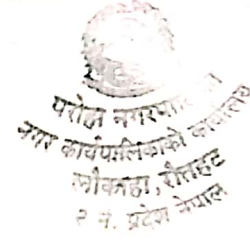 परोहा नगरपालिका
नगर कार्यपालिकाको कार्यालय
लौकाहा, रौतहट
२ नं. प्रदेश नेपाल